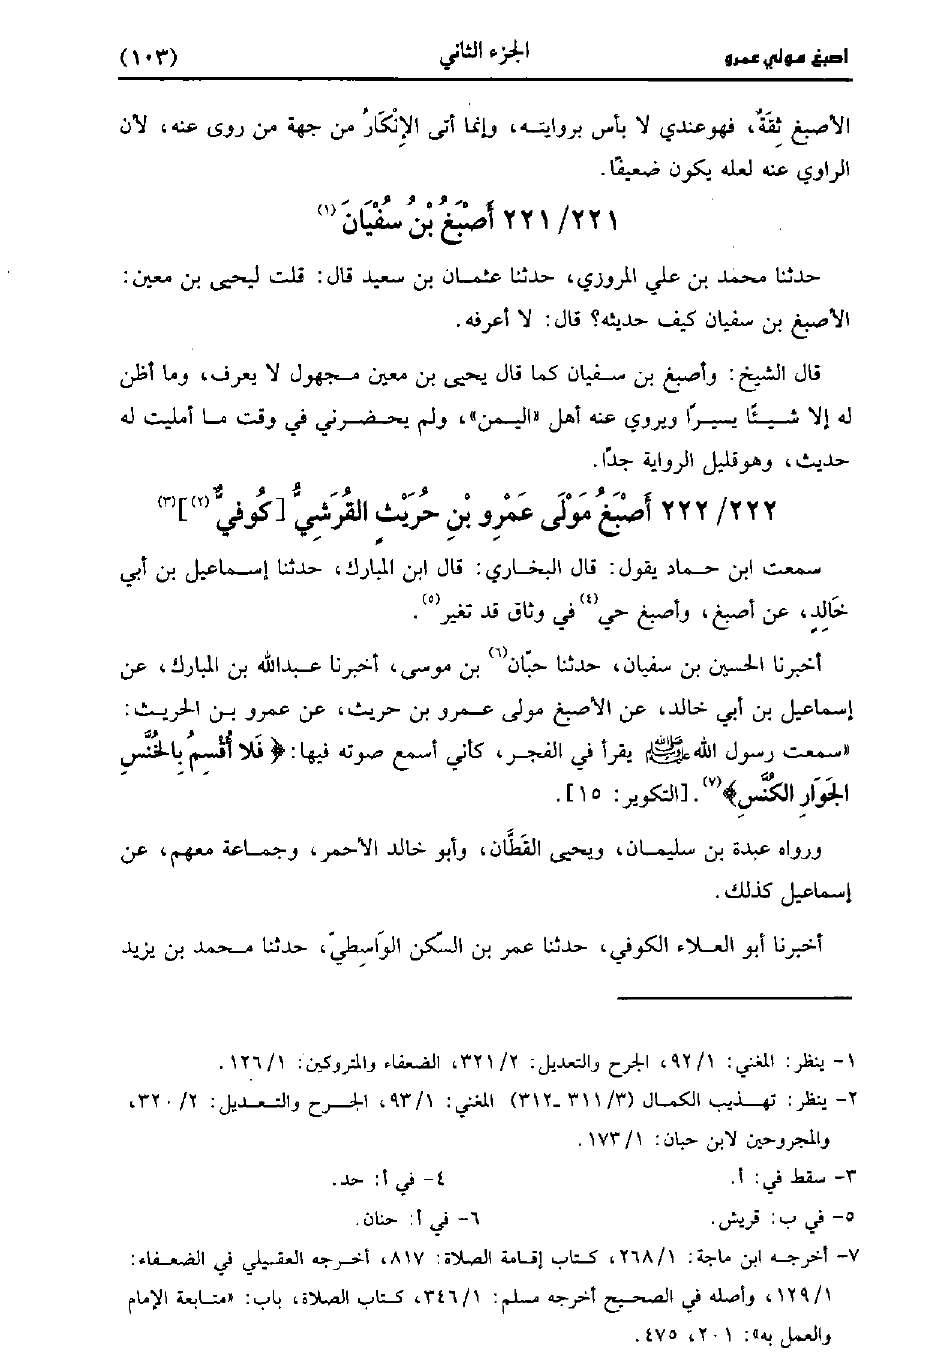 اصبغ مولي عمرو الجزء الثاني (١٠٣)
الأصبغ ثِقَةٌ، فهوعندي لا بأس بروايته، وإنما أتى الإِنْكَارُ من جهة من روى عنه، لأن
الراوي عنه لعله يكون ضعيفًا.
٢٢١/ ٢٢١ أَصْبَغُ بْنُ سُفْيَانَ (١)
حدثنا محمد بن علي المروزي، حدثنا عثمان بن سعيد قال: قلت ليحيى بن معين:
الأصبغ بن سفيان كيف حديثه؟ قال: لا أعرفه.
قال الشيخ: وأصبغ بن سفيان كما قال يحيى بن معين مجهول لا يعرف، وما أظن
له إلا شيئًا يسيرًا ويروي عنه أهل «اليمن»، ولم يحضرني في وقت ما أمليت له
حديث، وهوقليل الرواية جدًا.
٢٢٢/ ٢٢٢ أَصْبَغُ مَوْلَى عَمْرِو بْنِ حُرَيْثٍ القُرَشِيُّ [كُوفِيٌّ (٢)] (٣)
سمعت ابن حماد يقول: قال البخاري: قال ابن المبارك، حدثنا إسماعيل بن أبي
خَالِدٍ، عن أصبغ، وأصبغ حي(٤) في وثاق قد تغير(٥).
أخبرنا الحسين بن سفيان، حدثنا حبّان(٦) بن موسى، أخبرنا عبدالله بن المبارك، عن
إسماعيل بن أبي خالد، عن الأصبغ مولى عمرو بن حريث، عن عمرو بن الحريث:
«سمعت رسول الله ﷺ يقرأ في الفجر، كأني أسمع صوته فيها: ﴿فَلَا أُقْسِمُ بِالْخُنَّسِ
الجَوَارِ الكُنَّسِ﴾(٧). [التكوير: ١٥].
ورواه عبدة بن سليمان، ويحيى القَطَّان، وأبو خالد الأحمر، وجماعة معهم، عن
إسماعيل كذلك.
أخبرنا أبو العلاء الكوفي، حدثنا عمر بن السكن الوَاسِطِيّ، حدثنا محمد بن يزيد
١- ينظر: المغني: ٩٢/١، الجرح والتعديل: ٣٢١/٢، الضعفاء والمتروكين: ١٢٦/١.
٢- ينظر: تهذيب الكمال (٣١١/٣ـ٣١٢) المغني: ٩٣/١، الجرح والتعديل: ٣٢٠/٢،
والمجروحين لابن حبان: ١٧٣/١.
٣- سقط في: أ. ٤- في أ: حد.
٥- في ب: قريش. ٦- في أ: حنان.
٧- أخرجه ابن ماجة: ٢٦٨/١، كتاب إقامة الصلاة: ٨١٧، أخرجه العقيلي في الضعفاء:
١٢٩/١، وأصله في الصحيح أخرجه مسلم: ٣٤٦/١، كتاب الصلاة، باب: «متابعة الإمام
والعمل به»: ٢٠١، ٤٧٥.